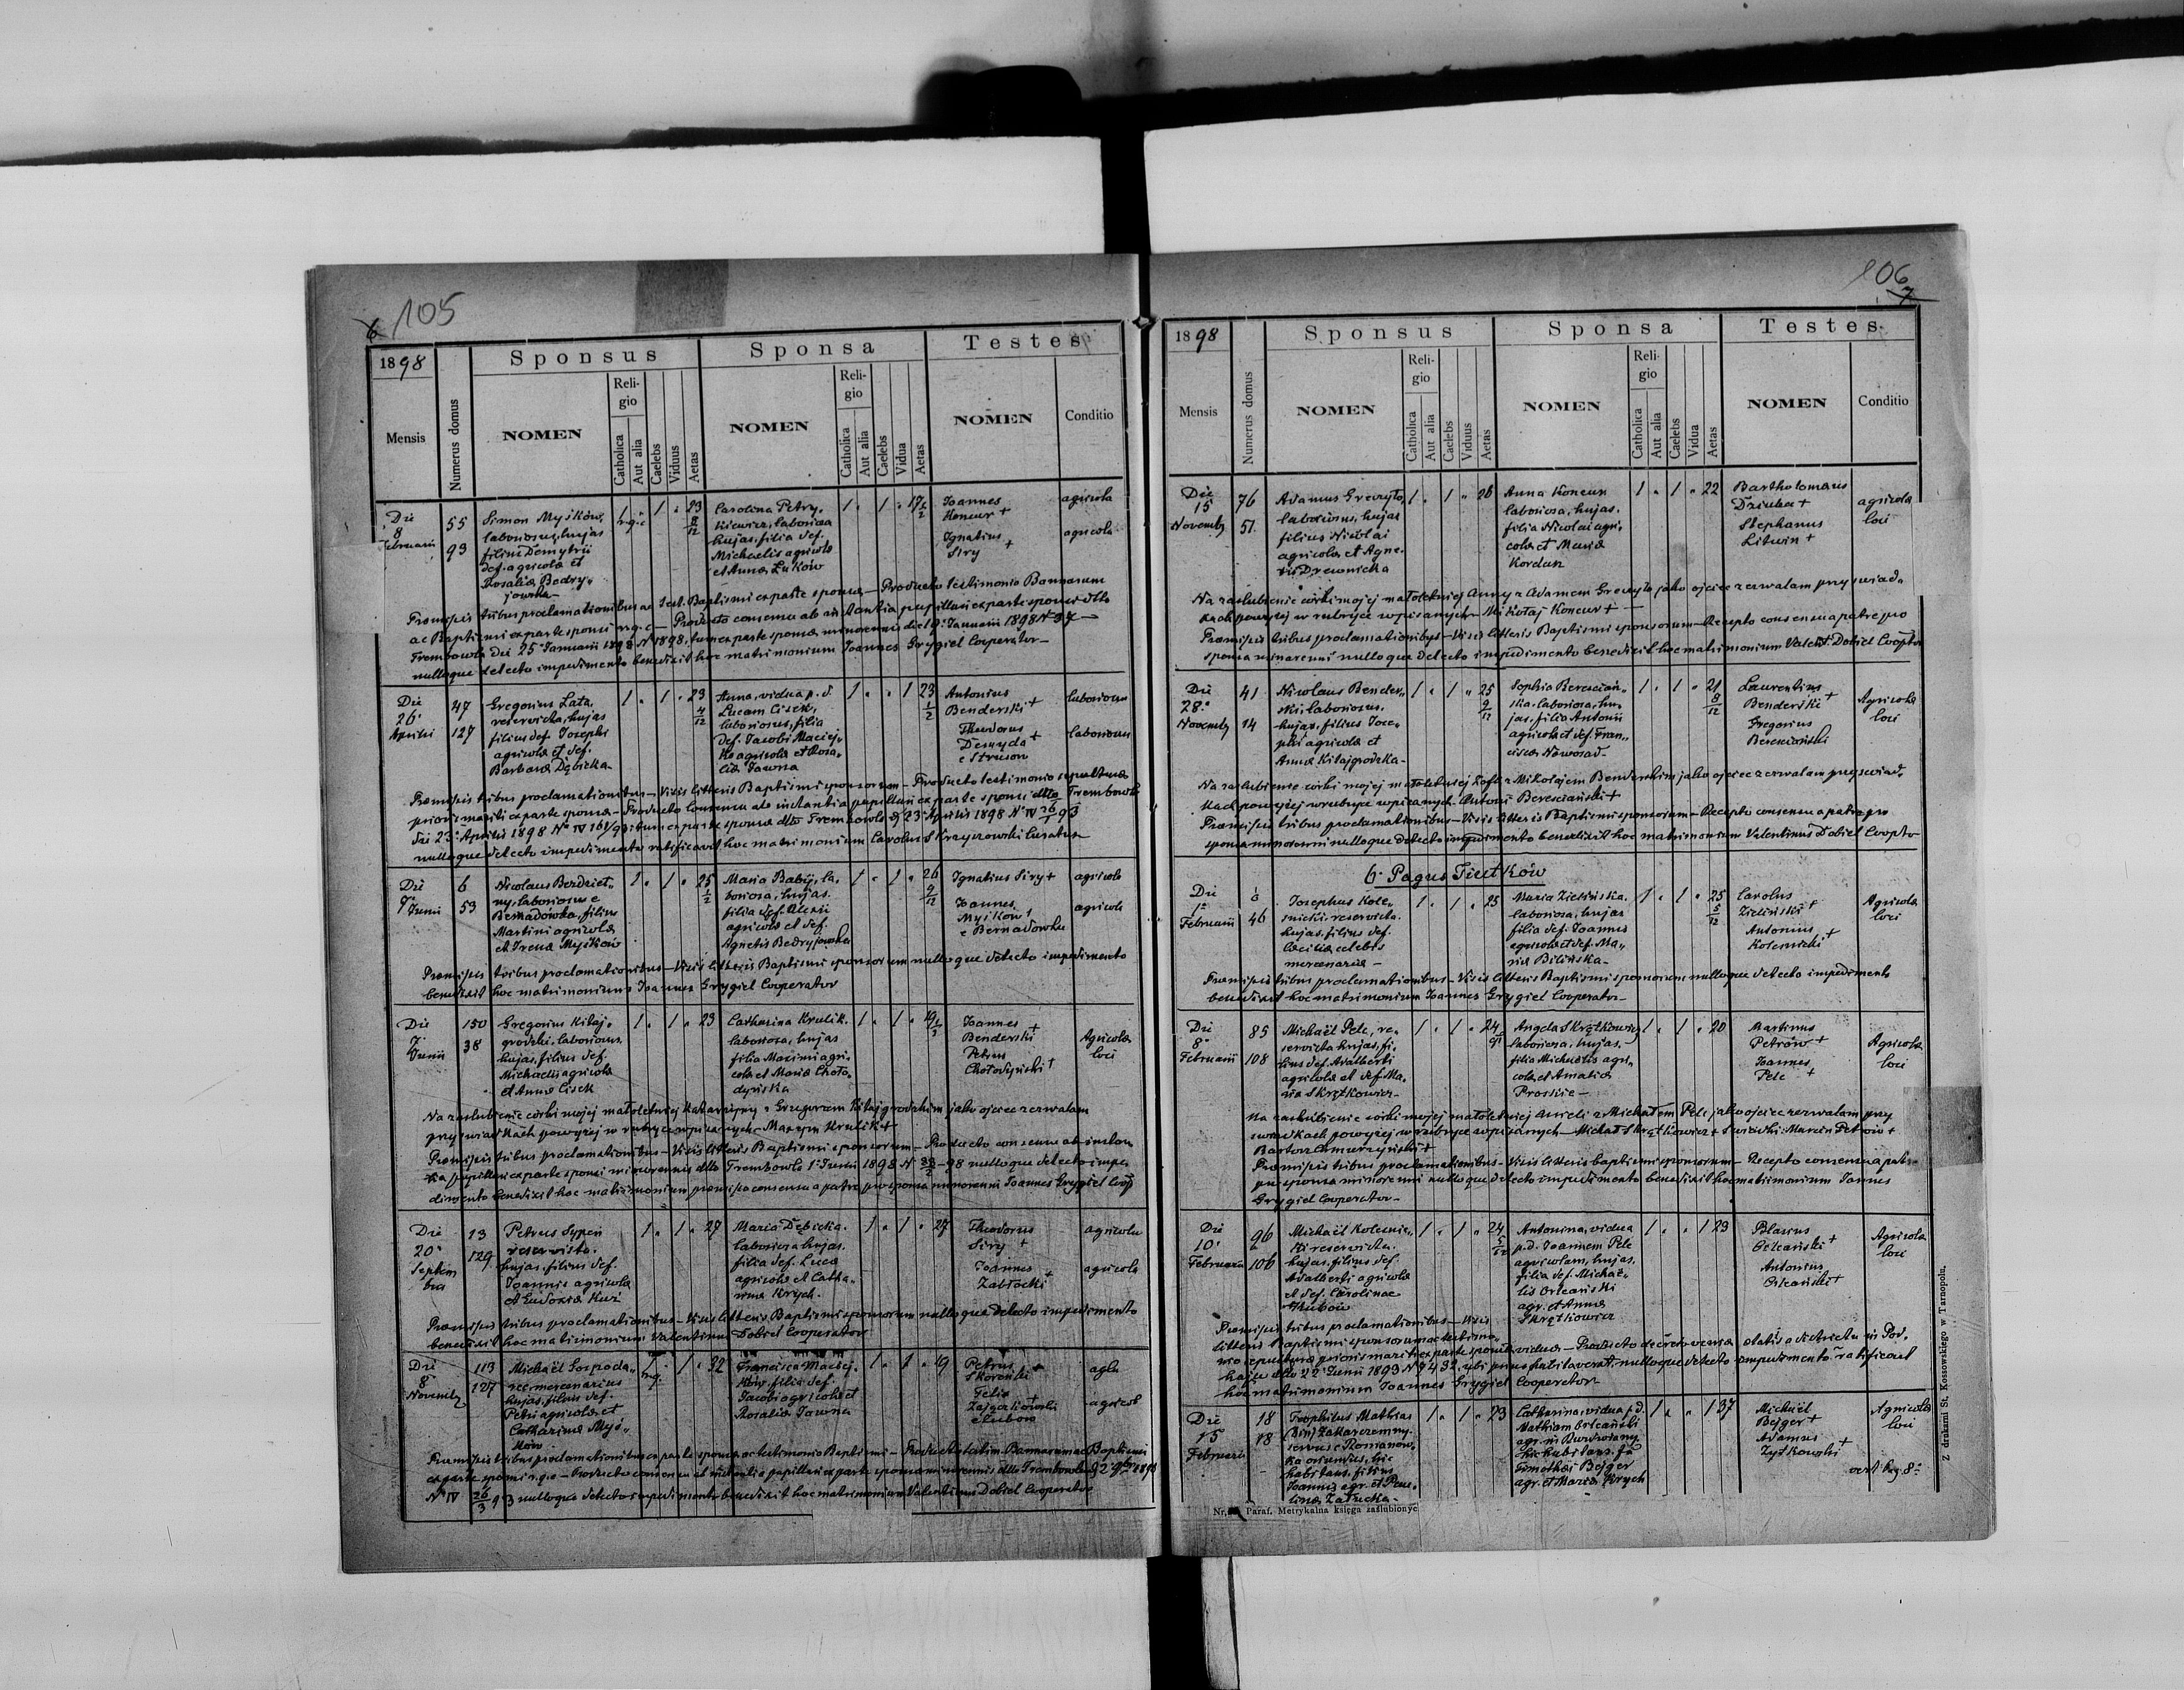 6 105
1898
Sponsus
Sponsa
Testes
Mensis
Numerus domus
NOMEN
Religio
Catholica
Aut alia
Caelebs
Viduus
Aetas
NOMEN
Religio
Catholica
Aut alia
Caelebs
Vidua
Aetas
NOMEN
Conditio
Die 8 Februarii
55
93
Simon Myśków,
laboriosus, hujas
filius Demytrii
def. agricolæ et
Rosaliæ Bedry„
jowska
1 r.g.c. 1 23 8/12
Carolina Petry„
kiewicz, laboriosa
hujas, filia def.
Michaelis agricolæ
et Annæ Łuków
1 1 17 1/2
Joannes
Koncur +
Ignatius
Siry +
agricola
agricola
Præmissis tribus proclamationibus ac test. Baptismi ex parte sponsæ — Producto testimonio Bannorum
ac Baptismi ex parte sponsi r.g.c — Producto consensu ab instantia pupillari ex parte sponsi dtto
Trembowla die 25 Januarii 1898 N 1898, tum ex parte sponsæ minorennis die 19 Januarii 1898 N 37 —
nulloque detecto impedimento benedixit hoc matrimonium Joannes Grygiel Cooperator —
Die 26 Aprilis
47
127
Gregorius Łata,
reservista, hujas
filius def. Josephi
agricolæ et def.
Barbaræ Dębicka
1 1 23 4/12
Anna, vidua p. d.
Lucam Cisek,
laboriosus, filia
def. Jacobi Maciej„
ko agricolæ et Rosa„
liæ Jawna
1 1 23 1/2
Antonius
Benderski +
Theodorus
Demyda +
e Strusow
laboriosus
laboriosus
Præmissis tribus proclamationibus — Visis litteris Baptismi sponsorum — Producto testimonio sepulturæ
prioris mariti ex parte sponsæ — Producto consensu ab instantia pupillari ex parte sponsi dtto Trembowla
die 23 Aprilis 1898 N IV 161/93 tum ex parte sponsæ dtto Trembowla d 23 Aprilis 1898 N IV 26/1 93
nulloque detecto impedimento ratificavit hoc matrimonium Carolus Skrzyszowski Curatus
Die 7 Junii
6
53
Nicolaus Berdziet„
ny, laboriosus e
Bernadówka, filius
Martini agricolæ
et Irenæ Myśków
1 1 25 1/2
Maria Babij, la„
boriosa, hujas.
filia def. Alexii
agricolæ et def.
Agnetis Bedryjowska
1 1 26 9/12
Ignatius Siry +
Joannes
Myśków +
e Bernadowka
agricola
agricola
Præmissis tribus proclamationibus — Visis litteris Baptismi sponsorum nulloque detecto impedimento
benedixit hoc matrimonium Joannes Grygiel Cooperator
Die 7. Junii
150
38
Gregorius Kitaj„
grodzki, laboriosus,
hujas, filius def.
Michaelis agricolæ
et Annæ Cisek
1 1 23
Catharina Krulik.
laboriosa, hujas
filia Maximi agri„
colæ et Mariæ Choło„
dyńska
1 1 19 1/2
Joannes +
Benderski
Petrus
Chołodyński +
Agricolæ
loci
Na zaślubienie córki mojej małoletniej Katarzyny z Grzegorzem Kitajgrodzkim jako ojciec zezwalam
przy świadkach powyżej w rubryce wpisanych — Maxym Krulik +
Præmissis tribus proclamationibus — Visis litteris Baptismi sponsorum — Producto consensu ab instan„
tia pupillari ex parte sponsi minorennis dtto Trembowla 1 Junii 1898 N 98 nulloque detecto impe„
dimento benedixit hoc matrimonium præmisso consensu a patre pro sponsa minorenni Joannes Grygiel Coop
Die 20 Septembris
13
129
Petrus Sypeń
reservista.
hujas, filius def.
Joannis agricolæ
et Eudoxiæ Kuź
1 1 27
Maria Dębicka.
laboriosa hujas.
filia def. Lucæ
agricolæ et Catha„
rinæ Krych.
1 1 27
Theodorus
Siry +
Joannes
Zabłocki +
agricola
agricola
Præmissis tribus proclamationibus — Visis litteris Baptismi sponsorum nulloque detecto impedimento
benedixit hoc matrimonium Valentinus Dobiel Cooperator
Die 8 Novemb.
113
127
Michaël Hospoda„
rec mercenarius
hujas, filius def.
Petri agricolæ et
Catharinæ Myś„
ków
1 r.g. 1 32
Francisca Maciej„
ków, filia def.
Jacobi agricolæ et
Rosaliæ Jawna
1 1 19
Petrus +
Skoreński
Felix
Zajączkowski +
e Łubow
agla
agricol
Præmissis tribus proclamationibus ex parte sponsæ ac testimonio Baptismi — Producto testim. Bannorum ac Baptismi
ex parte sponsi r.g.c — Producto consensu ab instantia pupillari ex parte sponsæ minorennis dtto Trembowla d 2 9bris 1898
N IV 26/3 93 nulloque detecto impedimento benedixit hoc matrimonium Valentinus Dobiel Cooperator
106
7
1898
Sponsus
Sponsa
Testes
Mensis
Numerus domus
NOMEN
Religio
Catholica
Aut alia
Caelebs
Viduus
Aetas
NOMEN
Religio
Catholica
Aut alia
Caelebs
Vidua
Aetas
NOMEN
Conditio
Die 15 Novemb
76
51.
Adamus Greczyło,
laboriosus, hujas
filius Nicolai
agricolæ et Agne„
tis Drewnicka
1 1 26
Anna Koncur
laboriosa, hujas.
filia Nicolai agri„
colæ et Mariæ
Kordan
1 1 22
Bartholomæus
Dziuba +
Stephanus
Litwin +
agricolæ
loci
Na zaślubienie córki mojej małoletniej Anny z Adamem Greczyło jako ojciec zezwalam przy świad„
kach powyżej w rubryce wpisanych — Mikołaj Koncur + —
Præmissis tribus proclamationibus — Visis litteris Baptismi sponsorum — Recepto consensu a patre pro
sponsa minorenni nulloque detecto impedimento benedixit hoc matrimonium Valent. Dobiel Coop̃tor
Die 28. Novemb
41
14
Nicolaus Bender„
ski laboriosus.
hujas, filius Jose„
phi agricolæ et
Annæ Kitajgrodzka —
1 1 25 9/12
Sophia Bereściań„
ska, laboriosa, hu„
jas, filia Antonii
agricolæ et def. Fran„
ciscæ Nowosad —
1 1 21 8/12
Laurentius
Benderski +
Gregorius
Bereściański
Agricolæ
loci
Na zaślubienie córki mojej małoletniej Zofii z Mikołajem Benderskim jako ojciec zezwalam przy świad„
kach powyżej w rubryce wpisanych. Antoni Bereściański +
Præmissis tribus proclamationibus — Visis litteris Baptismi sponsorum — Recepto consensu a patre pro
sponsa minorenni nulloque detecto impedimento benedixit hoc matrimonium Valentinus Dobiel Coopto
6. Pagus Tiutków
Die 1 Februarii
46
Josephus Kole„
śnicki. reservista.
hujas. filius def.
Cæciliæ celebis
mercenariæ —
1 1 25
Maria Zielińska.
laboriosa, hujas
filia def. Joannis
agricolæ et def. Ma„
riæ Bilińska —
1 1 25 5/12
Carolus
Zieliński +
Antonius
Kolesnicki +
Agricolæ
loci
Præmissis tribus proclamationibus — Visis litteris Baptismi sponsorum nulloque detecto impedimento
benedixit hoc matrimonium Joannes Grygiel Cooperator —
Die 8 Februarii
85
108
Michaël Pelc, re„
servista hujas, fi„
lius def. Adalberti
agricolæ et def. Ma„
riæ Skrętkowicz —
1 1 24
Angela Skrętkowicz
laboriosa, hujas.
filia Michaelis agri„
colæ et Amaliæ
Prosskie —
1 1 20
Martinus
Petrów +
Joannes
Pelc +
Agricolæ
loci
Na zaślubienie córki mojej małoletniej Anieli z Michałem Pelc jako ojciec zezwalam przy
świadkach powyżej w rubryce wpisanych — Michał Skrętkowicz + Świadki: Marcin Petrów +
Præmissis tribus proclamationibus — Visis litteris baptismi sponsorum — Recepto consensu a patre
pro sponsa minorenni nulloque detecto impedimento benedixit hoc matrimonium Joannes
Grygiel Cooperator —
Die 10 Februarii
96
106
Michaël Kolesnic„
ki reservista.
hujas, filius def.
Adalberti agricolæ
et def. Carolinae
1 1 24 5/12
Antonina, vidua
p.d. Joannem Pelc
agricolam, hujas.
filia def. Michaë„
lis Orleański
agr. et Annæ
Skrętkowicz
1 1 23
Blasius
Orleański +
Antonius
Orleański +
Agricolæ
loci
Præmissis tribus proclamationibus — Visis
litteris Baptismi sponsorum ac testimo„
nio sepulturæ prioris mariti ex parte sponsæ viduæ — Producto decreto veniæ ætatis a districtu in Pod„
hajce dtto 22 Junii 1893 N 9432, ubi prius habitaverat, nulloque detecto impedimento ratificavit
hoc matrimonium Joannes Grygiel Cooperator
Die 15 Februarii
18
78
Theophilus Mathias
(bin.) Zakarczemny.
servus e Romanow„
ka oriundus, hic
habitans, filius
Joannis agr. et Pau„
linæ Załucka —
1 1 23
Catharina, vidua p.d.
Mathiam Orleański
agr. in
hic habitans. f.
Timothei Bejger
agr. et Mariæ Krych
1 1 37
Michaël
Bejger +
Adamus
Zytkowski +
Agricolæ
loci
vert. pag. 8
Nr. Paraf. Metrykalna księga zaślubionyc
Z drukarni St. Kossowskiego w Tarnopolu.